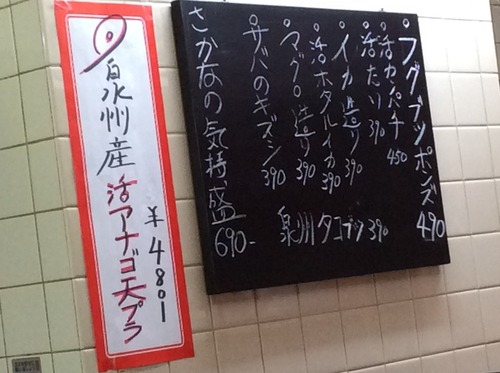 フグブツポンズ 490
活カパチ 450
活たり 390
イカ造り 390
活ホタルイカ 390
マグロ造り 390
サバのキズシ 390
泉州タコブツ 390
さかなの気持盛 690-
泉州産活アナゴ天プラ
¥480